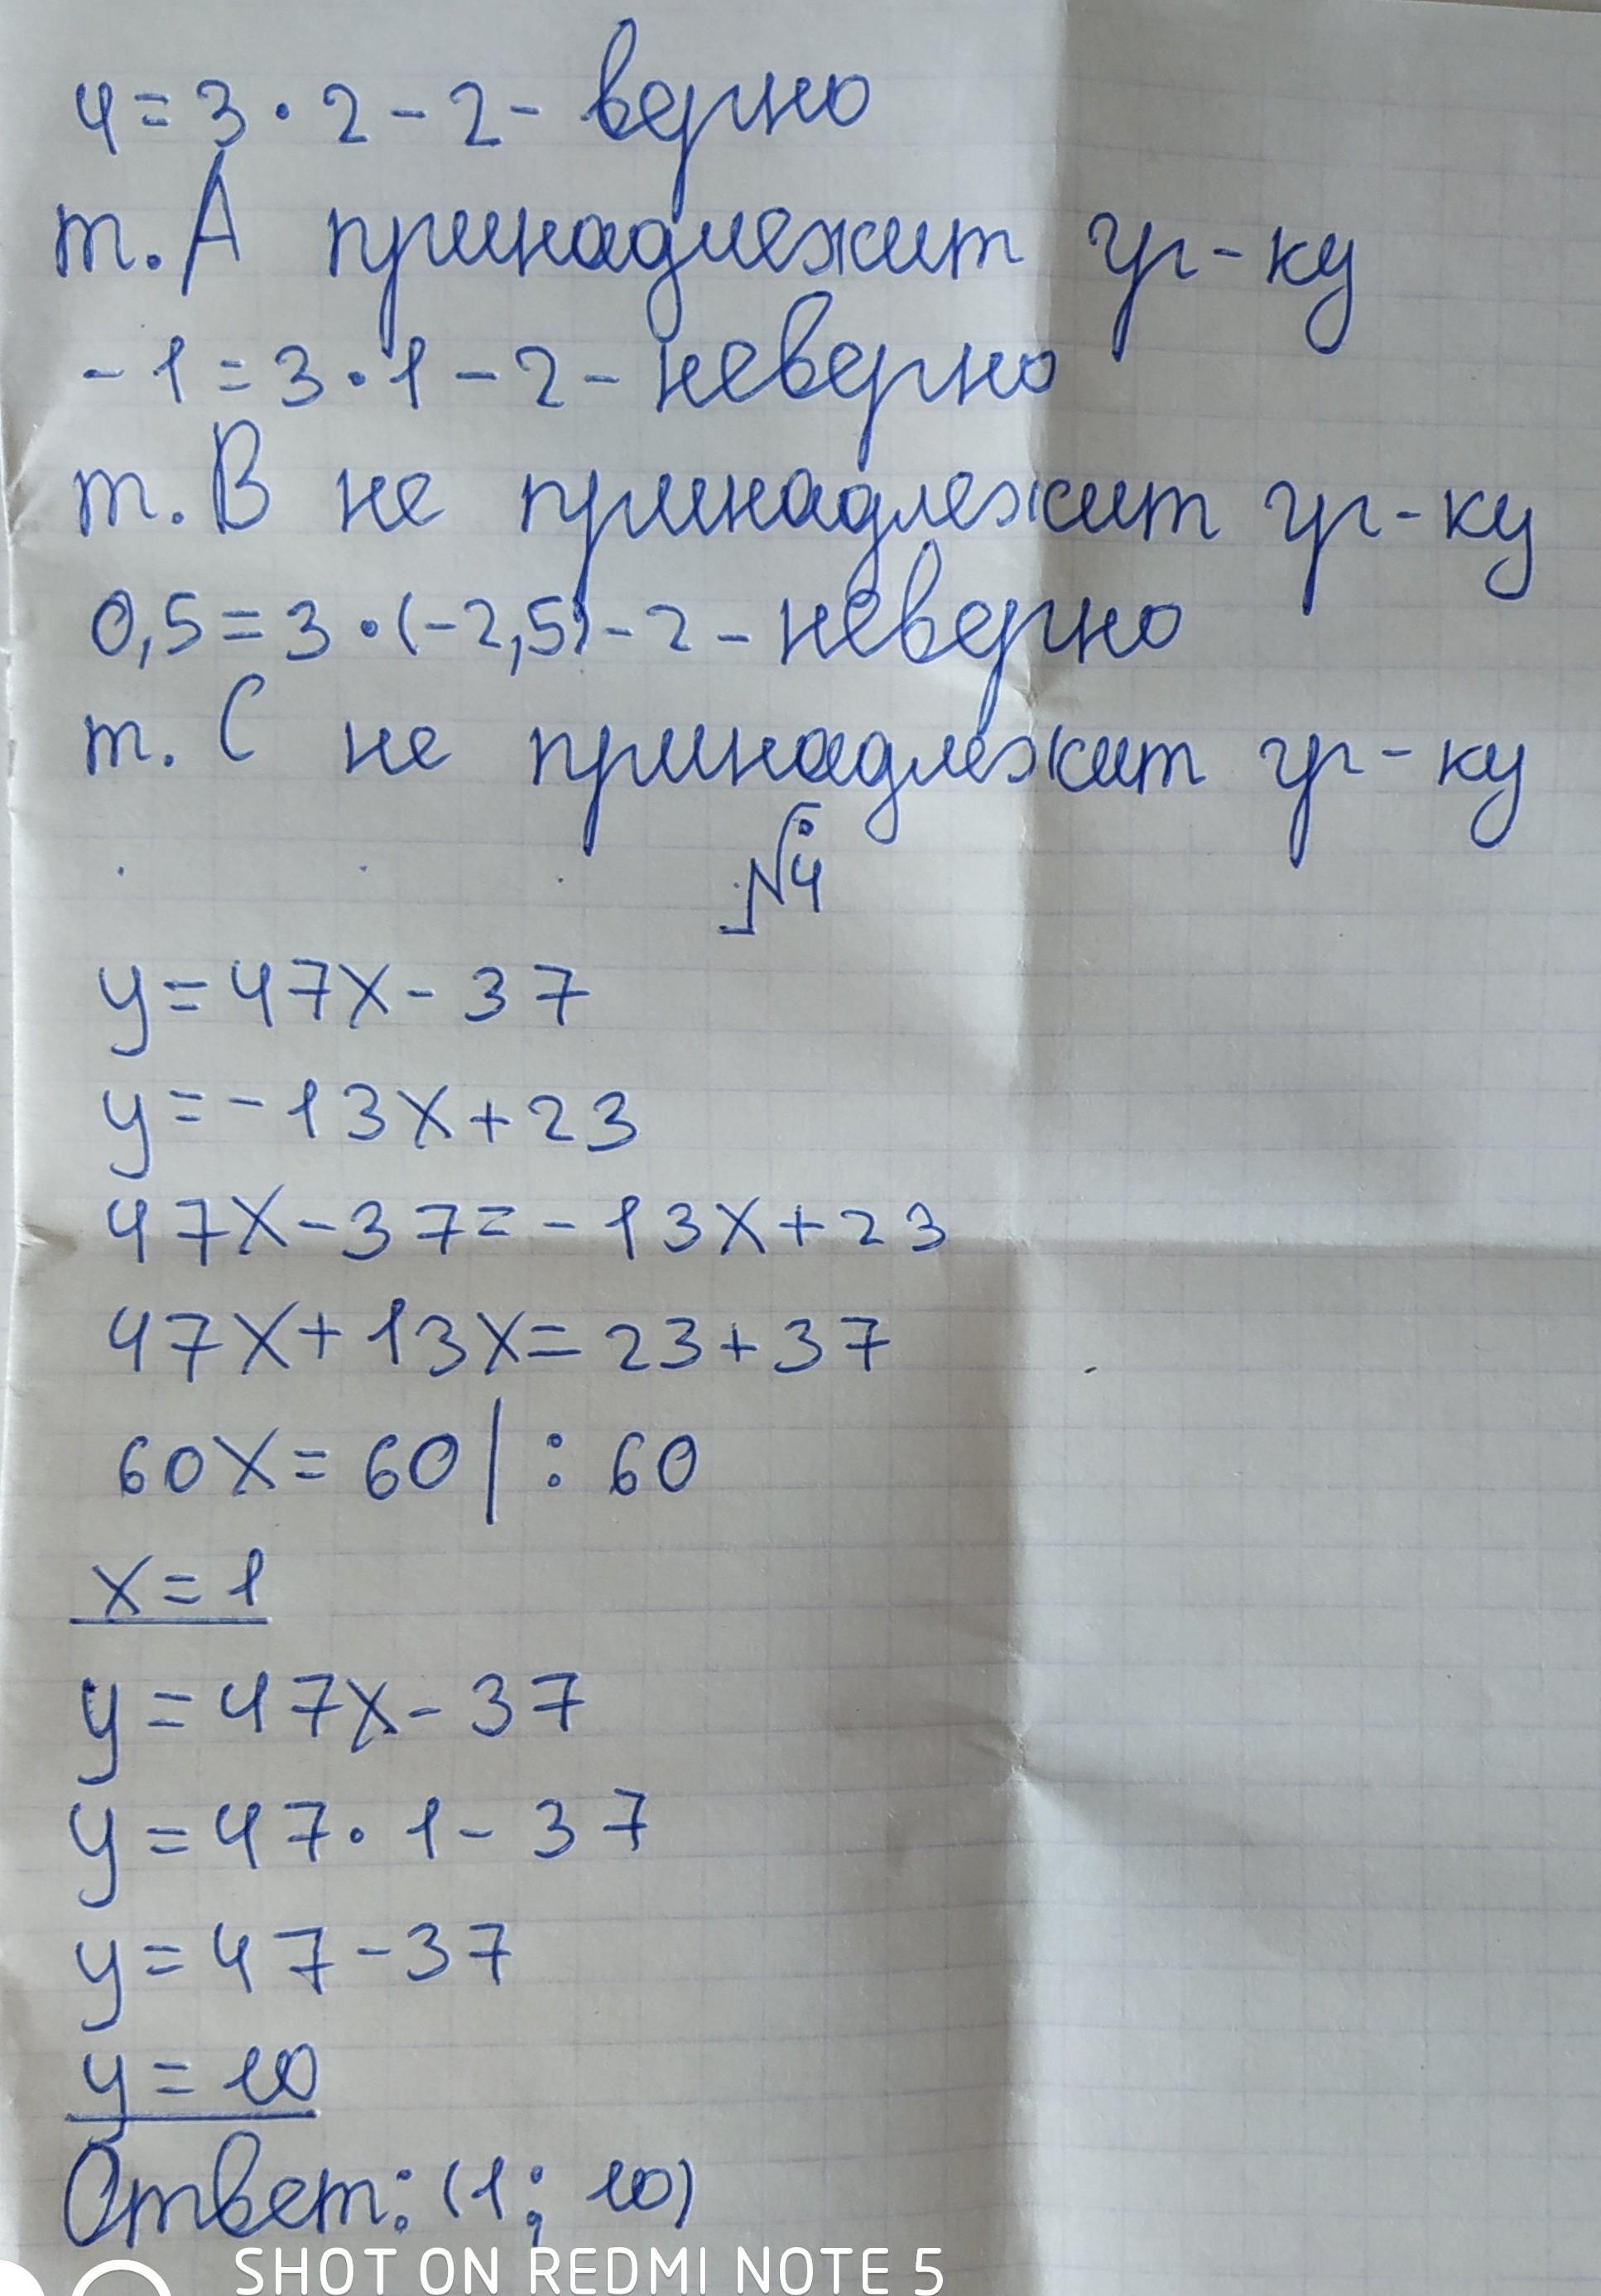 4=3·2-2- верно
т. А принадлежит гр-ку
-1=3·1-2- неверно
т. В не принадлежит гр-ку
0,5=3·(-2,5)-2- неверно
т. С не принадлежит гр-ку
№4
y=47x-37
y=-13x+23
47x-37=-13x+23
47x+13x=23+37
60x=60|:60
x=1
y=47x-37
y=47·1-37
y=47-37
y=10
Ответ: (1; 10)
SHOT ON REDMI NOTE 5